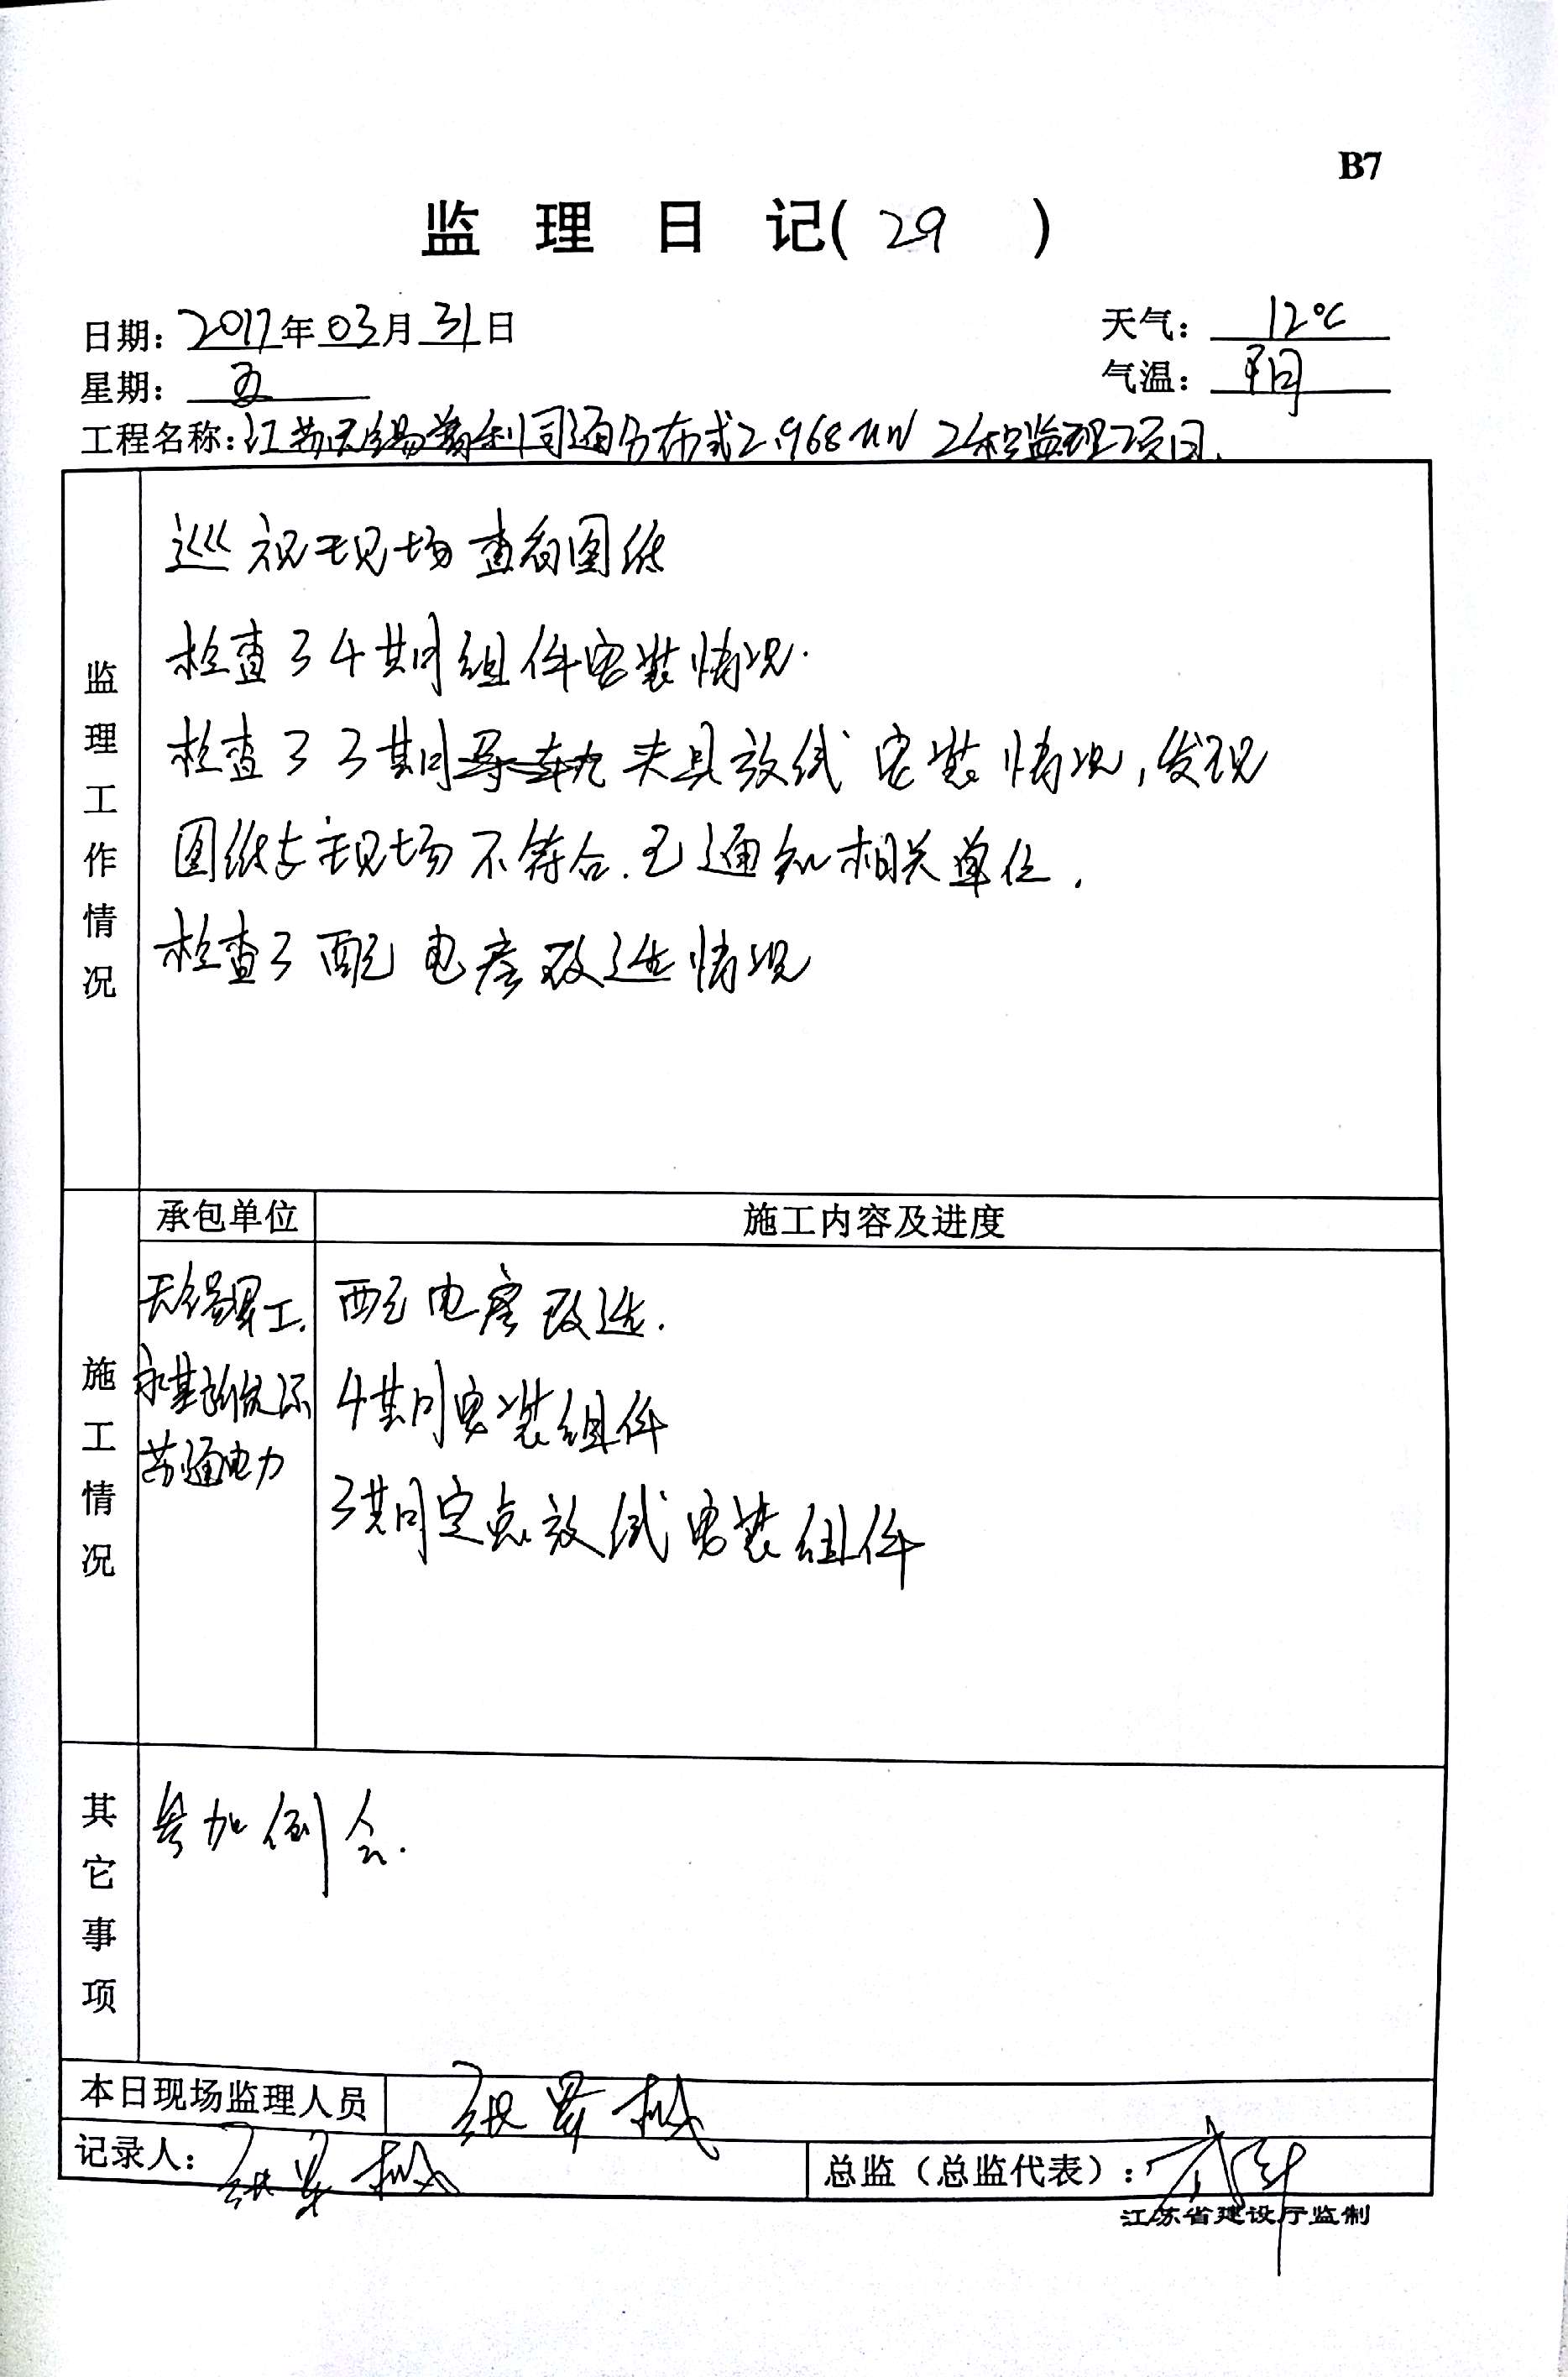 B7
监理日记(29)
日期：2017年03月31日
天气：12℃
星期：五
气温：阴
工程名称：江苏无锡 利同通分布式2.968MW工程监理项目.
监理工作情况
巡视现场查看图纸
检查了4期间组件安装情况.
检查了3期间 夹具放线安装情况,发现
图纸与现场不符合.已通知相关单位.
检查了配电房改造情况
施工情况
承包单位
施工内容及进度
无锡 工.
苏通电力
配电房改造.
4期间安装组件
3期间定点放线安装组件
其它事项
参加例会.
本日现场监理人员
记录人：
总监（总监代表）：
江苏省建设厅监制